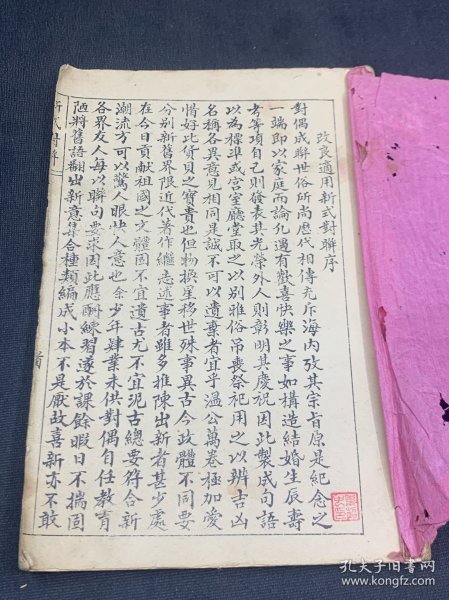 改良適用新式對聯序
對偶成聯世俗所尚歷代相傳充斥海內攷其宗旨原是紀念之
一端即以家庭而論凡遇有歡喜快樂之事如構造結婚生辰壽
考等項自己則發表其光榮外人則彰明其慶祝因此製成句語
以為標準或宮室廳堂取之以別雅俗吊喪祭祀用之以辨吉凶
名稱各異意見相同是誠不可以遺棄者宜乎溫公萬卷極加愛
惜好比貨貝之寶貴也但物換星移世殊事異古今政體不同要
分別新舊界限近代著作繼志述事者雖多推陳出新者甚少處
在今日貢獻祖國之文體固不宜遺古尤不宜泥古總要符合新
潮流方可以驚人眼快人意也余少年肄業未供對偶自任教育
各界友人每以聯句要求因此應酬練習遂於課餘暇日不揣固
陋將舊語翻出新意集合種類編成小本不是厭故喜新亦不敢
新式對聯
孔夫子旧书网
www.kongfz.com